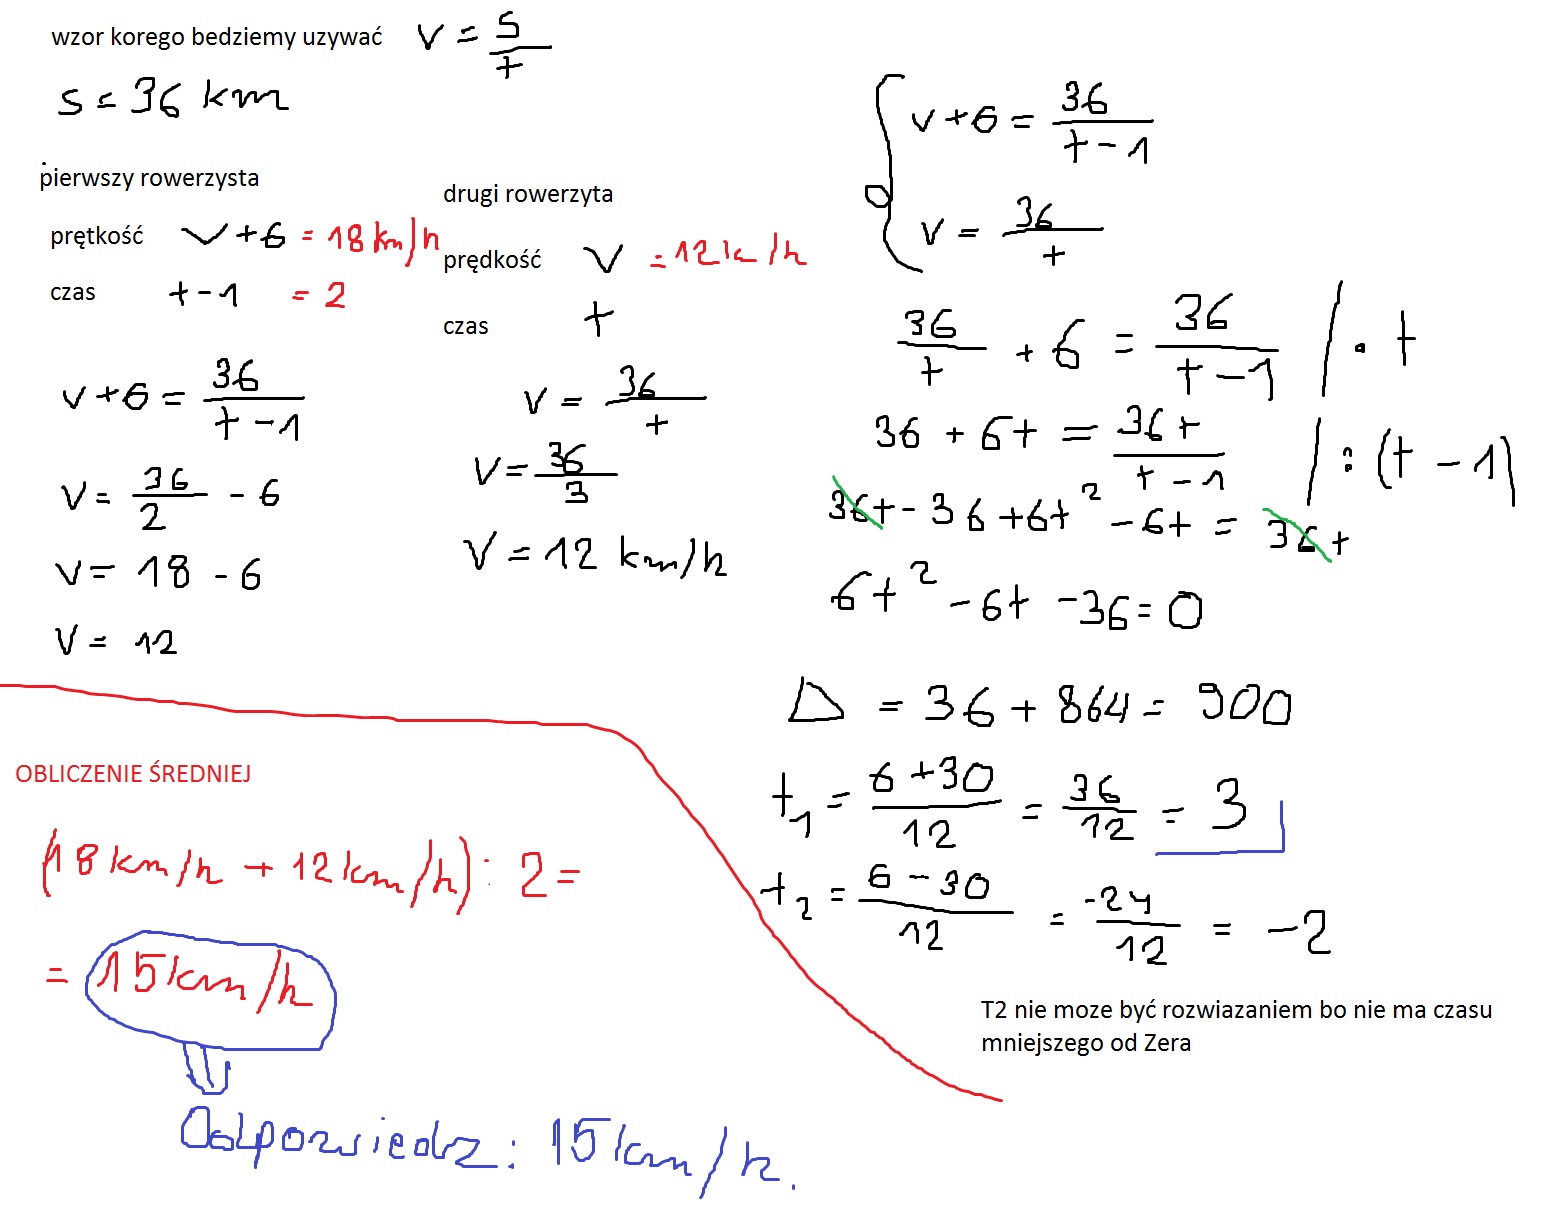 wzor korego bedziemy uzywać v = s/t
s = 36 km
pierwszy rowerzysta
prętkość v+6 = 18 km/h
czas t-1 = 2
v+6 = 36/(t-1)
v = 36/2 - 6
v = 18 - 6
v = 12
drugi rowerzyta
prędkość v = 12k/h
czas t
v = 36/t
v = 36/3
v = 12 km/h
v+6 = 36/(t-1)
v = 36/t
36/t + 6 = 36/(t-1) | · t
36 + 6t = 36t/(t-1) | : (t-1)
36t - 36 + 6t² - 6t = 36t
6t² - 6t - 36 = 0
Δ = 36 + 864 = 900
t₁ = (6+30)/12 = 36/12 = 3
t₂ = (6-30)/12 = -24/12 = -2
T2 nie moze być rozwiazaniem bo nie ma czasu
mniejszego od Zera
OBLICZENIE ŚREDNIEJ
(18km/h + 12km/h) : 2 =
= 15km/h
Odpowiedz : 15km/h.